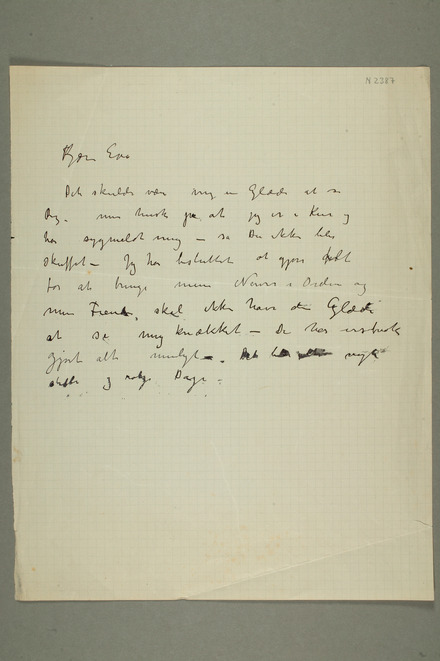 N. 2387
Kjære Eva
Det skulde være mig en Glæde at se
Dig. men husk på at jeg er i Kur og
har sygmeldt mig – så Du ikke blir
skuffet – Jeg har besluttet at gjøre alt
for at bringe mine Nerver i Orden og
mine Fiender skal ikke have den Glæde
at se mig knækket – De har
gjort alt muligt –. Det
og Dage –